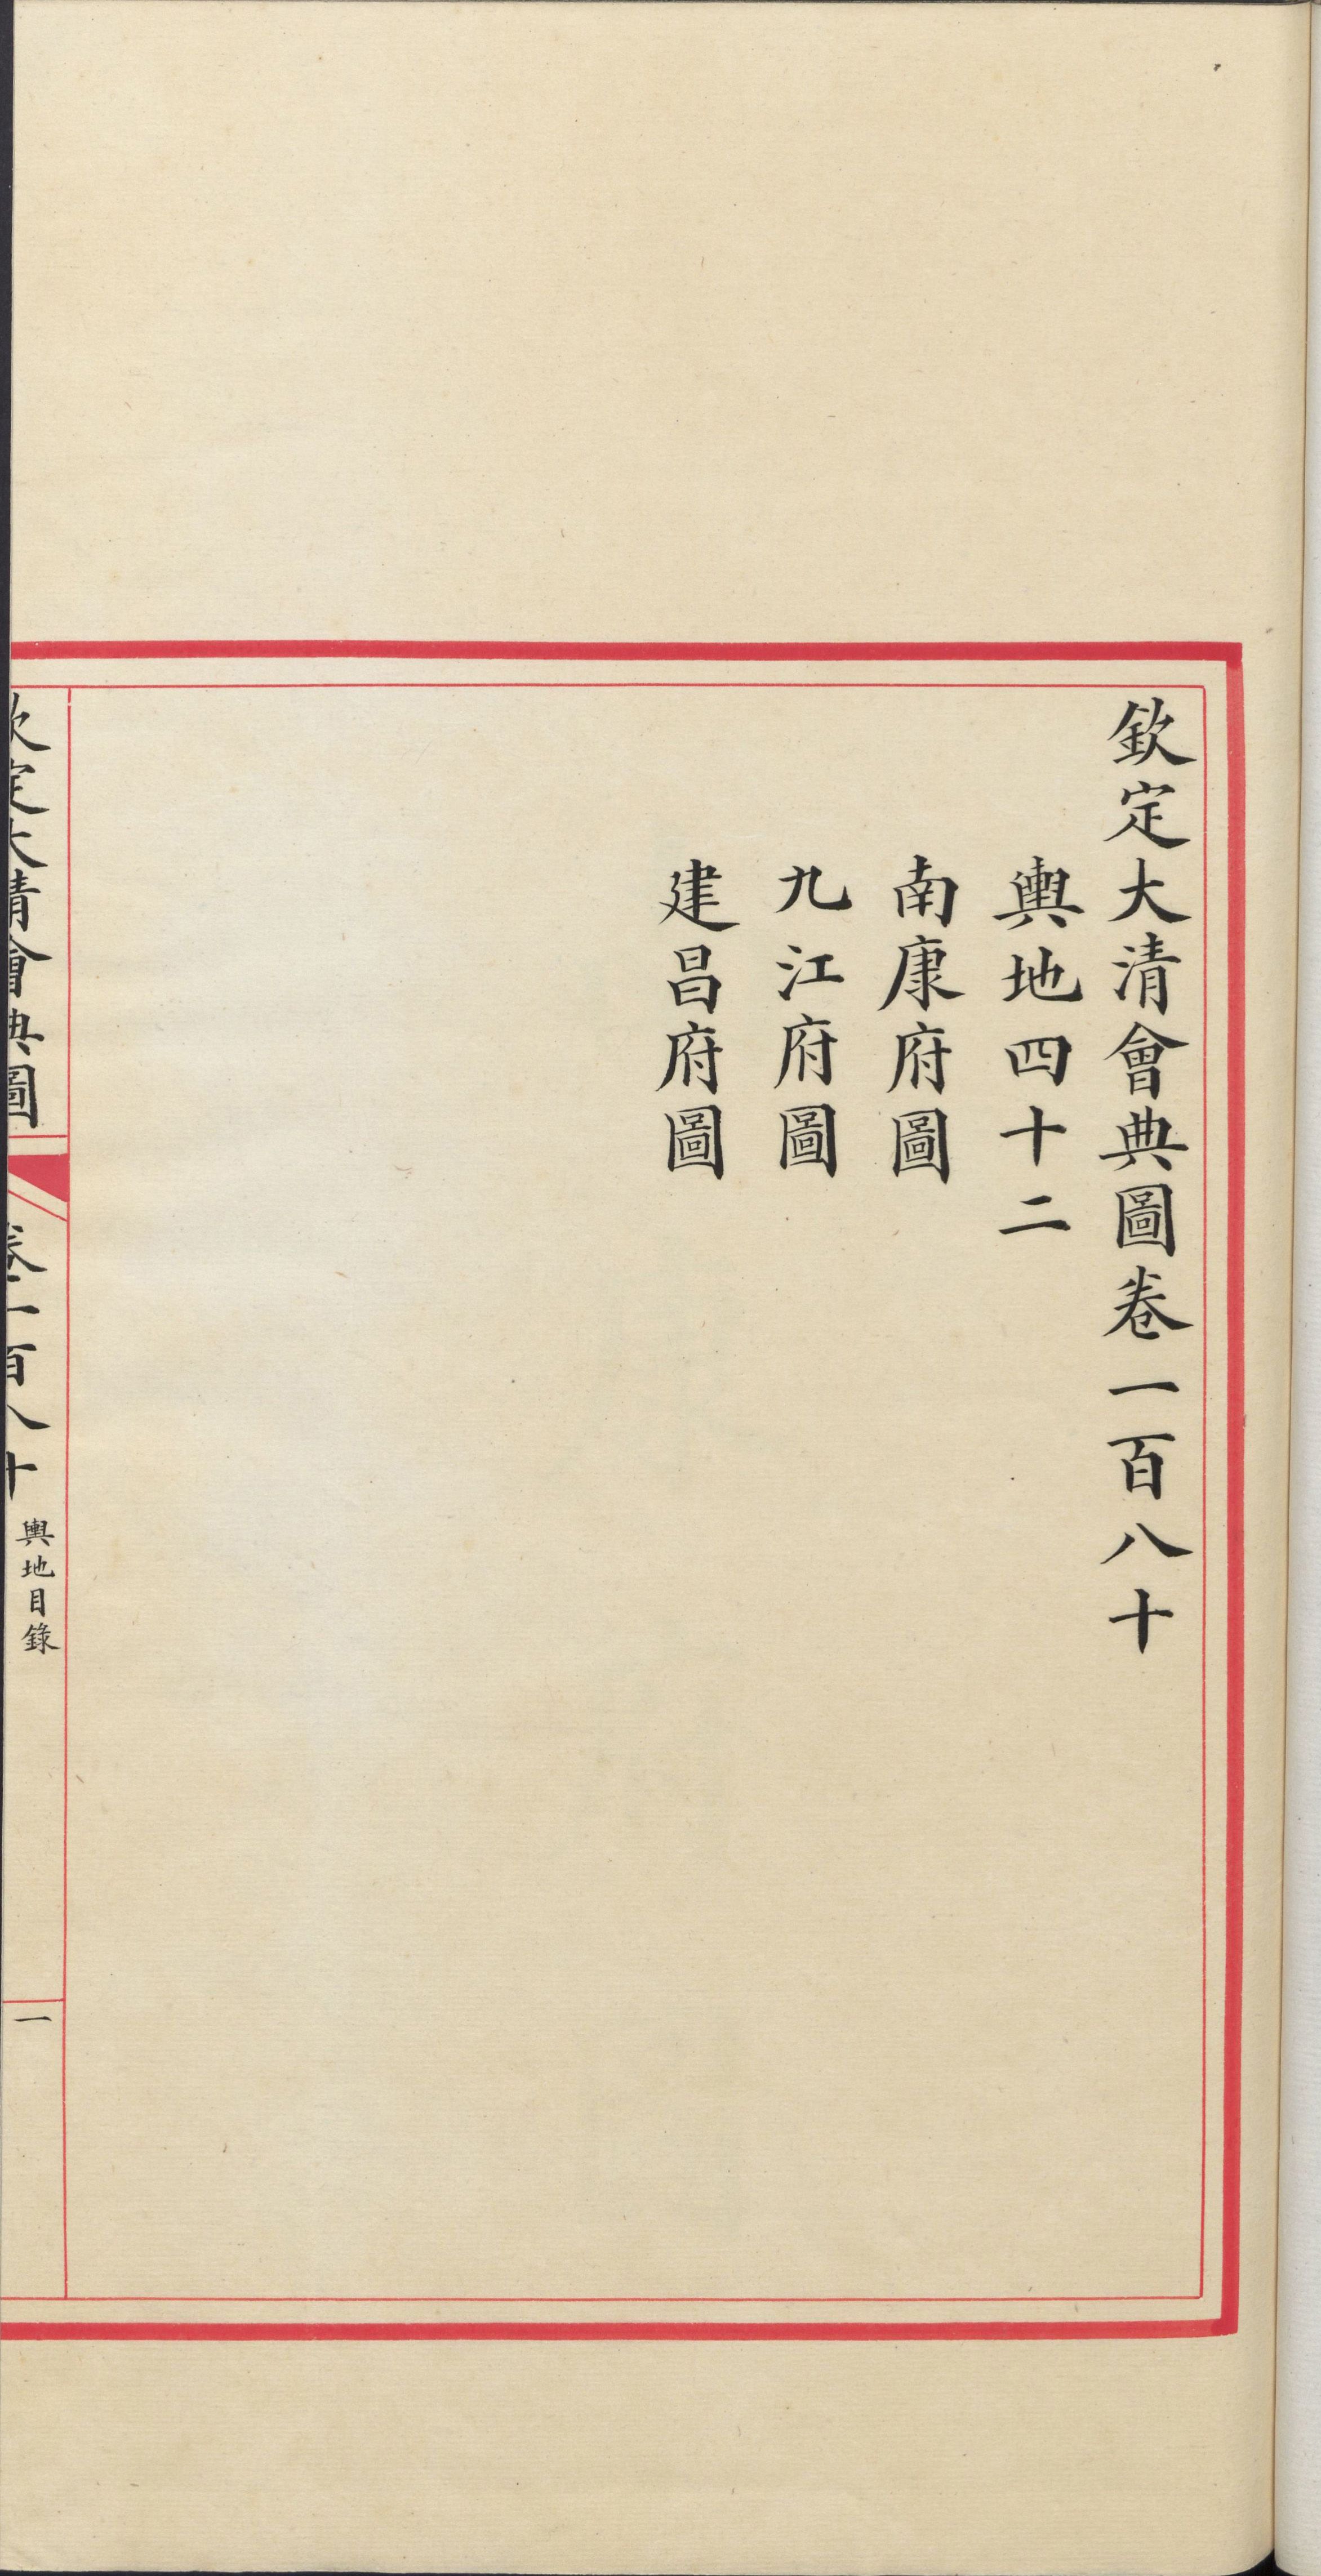 欽定大清會典圖卷一百八十
輿地四十二
南康府圖
九江府圖
建昌府圖
欽定大清會典圖
卷一百八十
輿地目錄
一